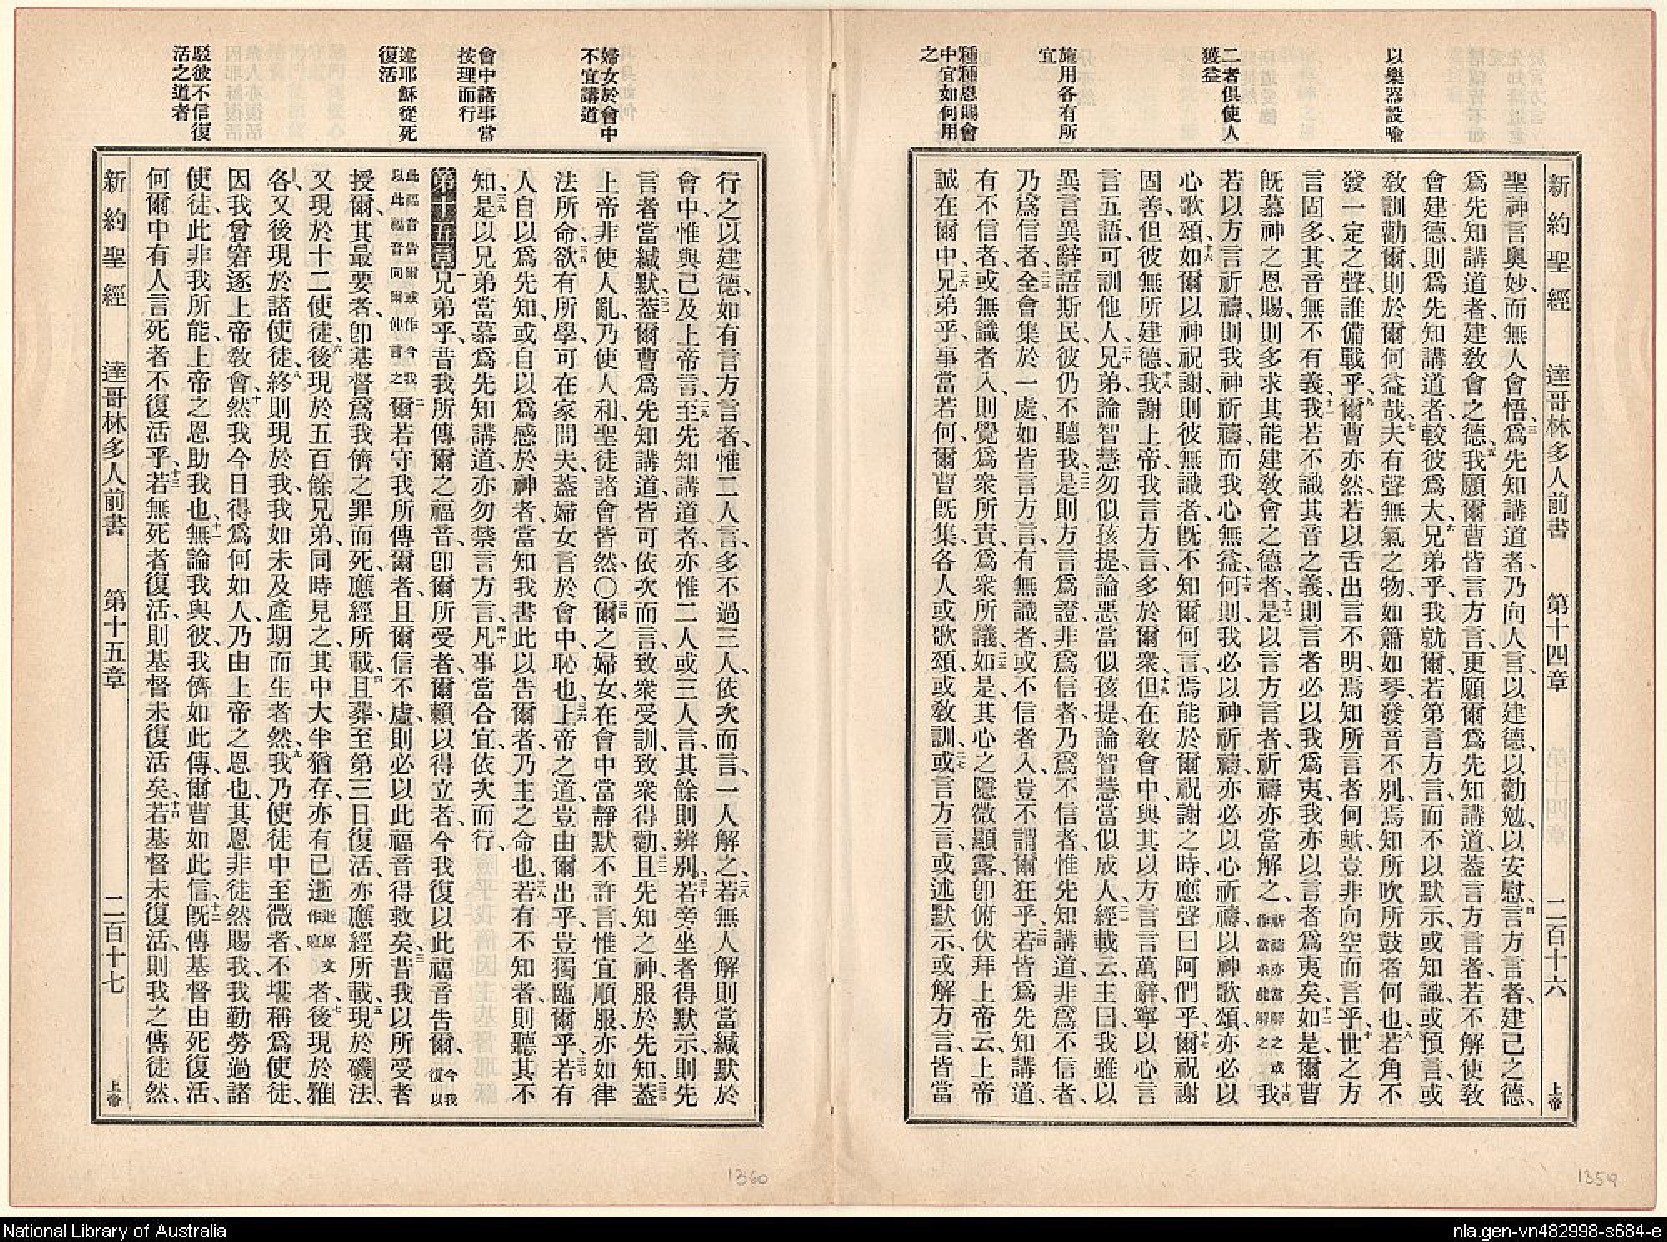 以樂器設喻
二者俱使人
獲益
施用各有所
宜
種種恩賜會
中宜如何用
之
新約聖經 達哥林多人前書 第十四章 二百十六 上帝
聖神言奧妙而無人會悟、三爲先知講道者、乃向人言、以建德、以勸勉、以安慰、四言方言者、建己之德、
爲先知講道者、建敎會之德、五我願爾曹皆言方言、更願爾爲先知講道、蓋言方言者、若不解使敎
會建德、則爲先知講道者、較彼爲大、六兄弟乎、我就爾、若第言方言、而不以默示、或知識、或預言、或
敎訓勸爾、則於爾何益哉、七夫有聲無氣之物、如簫如琴、發音不別、焉知所吹所鼓者何也、八若角不
發一定之聲、誰備戰乎、九爾曹亦然、若以舌出言不明、焉知所言者何歟、豈非向空而言乎、十世之方
言固多、其音無不有義、十一我若不識其音之義、則言者必以我爲夷、我亦以言者爲夷矣、十二如是、爾曹
旣慕神之恩賜、則多求其能建敎會之德者、十三是以言方言者、祈禱亦當解之、祈禱亦當解之或作當求能解之十四我
若以方言祈禱、則我神祈禱、而我心無益、十五何則、我必以神祈禱、亦必以心祈禱、以神歌頌、亦必以
心歌頌、十六如爾以神祝謝、則彼無識者、旣不知爾何言、焉能於爾祝謝之時、應聲曰阿們乎、十七爾祝謝
固善、但彼無所建德、十八我謝上帝、我言方言、多於爾衆、十九但在敎會中、與其以方言言萬辭、寧以心言
言五語、可訓他人、二十兄弟、論智慧勿似孩提、論惡當似孩提、論智慧當似成人、二一經載云、主曰、我雖以
異言異辭語斯民、彼仍不聽我、二二是則方言爲證、非爲信者、乃爲不信者、惟先知講道、非爲不信者、
乃爲信者、二三全會集於一處、如皆言方言、有無識者、或不信者入、豈不謂爾狂乎、二四若皆爲先知講道、
有不信者、或無識者入、則覺爲衆所責、爲衆所議、二五如是其心之隱微顯露、卽俯伏拜上帝云、上帝
誠在爾中、二六兄弟乎、事當若何、爾曹旣集、各人或歌頌、或敎訓、或言方言、或述默示、或解方言、皆當
婦女於會中
不宜講道
會中諸事當
按理而行
述耶穌從死
復活
駁彼不信復
活之道者
行之以建德、二七如有言方言者、惟二人言、多不過三人、依次而言、一人解之、二八若無人解、則當緘默於
會中、惟與己及上帝言、二九至先知講道者、亦惟二人或三人言、其餘則辨別、三十若旁坐者得默示、則先
言者當緘默、三一蓋爾曹爲先知講道、皆可依次而言、致衆受訓、致衆得勸、三二且先知之神、服於先知、三三蓋
上帝非使人亂、乃使人和、聖徒諸會皆然、〇三四爾之婦女、在會中當靜默、不許言、惟宜順服、亦如律
法所命、三五欲有所學、可在家問夫、蓋婦女言於會中、恥也、三六上帝之道、豈由爾出乎、豈獨臨爾乎、三七若有
人自以爲先知、或自以爲感於神者、當知我書此以告爾者、乃主之命也、三八若有不知者、則聽其不
知、三九是以兄弟當慕爲先知講道、亦勿禁言方言、四十凡事當合宜、依次而行、
第十五章兄弟乎、昔我所傳爾之福音、卽爾所受者、爾賴以得立者、今我復以此福音告爾、今我復以
此福音告爾或作今我以此福音向爾伸言之二爾若守我所傳爾者、且爾信不虛、則必以此福音得救矣、三昔我以所受者
授爾、其最要者、卽基督爲我儕之罪而死、應經所載、四且葬、至第三日復活、亦應經所載、五現於磯法、
又現於十二使徒、六後現於五百餘兄弟、同時見之、其中大半猶存、亦有已逝逝原文作寢者、七後現於雅
各、又後現於諸使徒、八終則現於我、我如未及產期而生者然、九我乃使徒中至微者、不堪稱爲使徒、
因我曾窘逐上帝敎會、十然我今日得爲何如人、乃由上帝之恩也、其恩非徒然賜我、我勤勞過諸
使徒、此非我所能、上帝之恩助我也、十一無論我與彼、我儕如此傳、爾曹如此信、十二旣傳基督由死復活、
何爾中有人言死者不復活乎、十三若無死者復活、則基督未復活矣、十四若基督未復活、則我之傳徒然、
新約聖經 達哥林多人前書 第十五章 二百十七 上帝
1360
1359
National Library of Australia
nla.gen-vn482998-s684-e